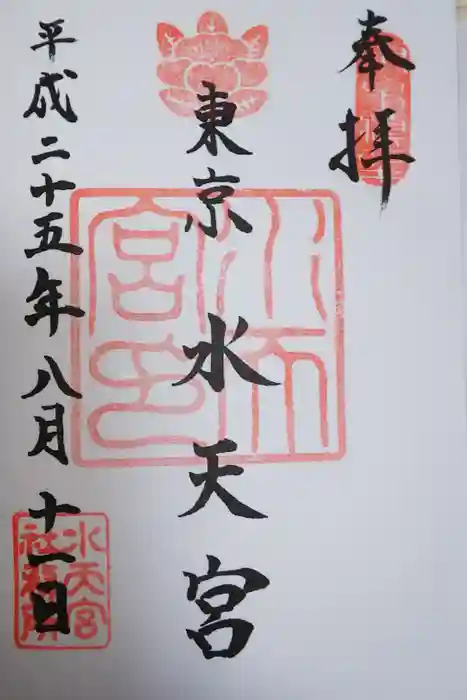 奉拝
東京 水天宮
平成二十五年八月十一日
水天宮印
水天宮
社務所